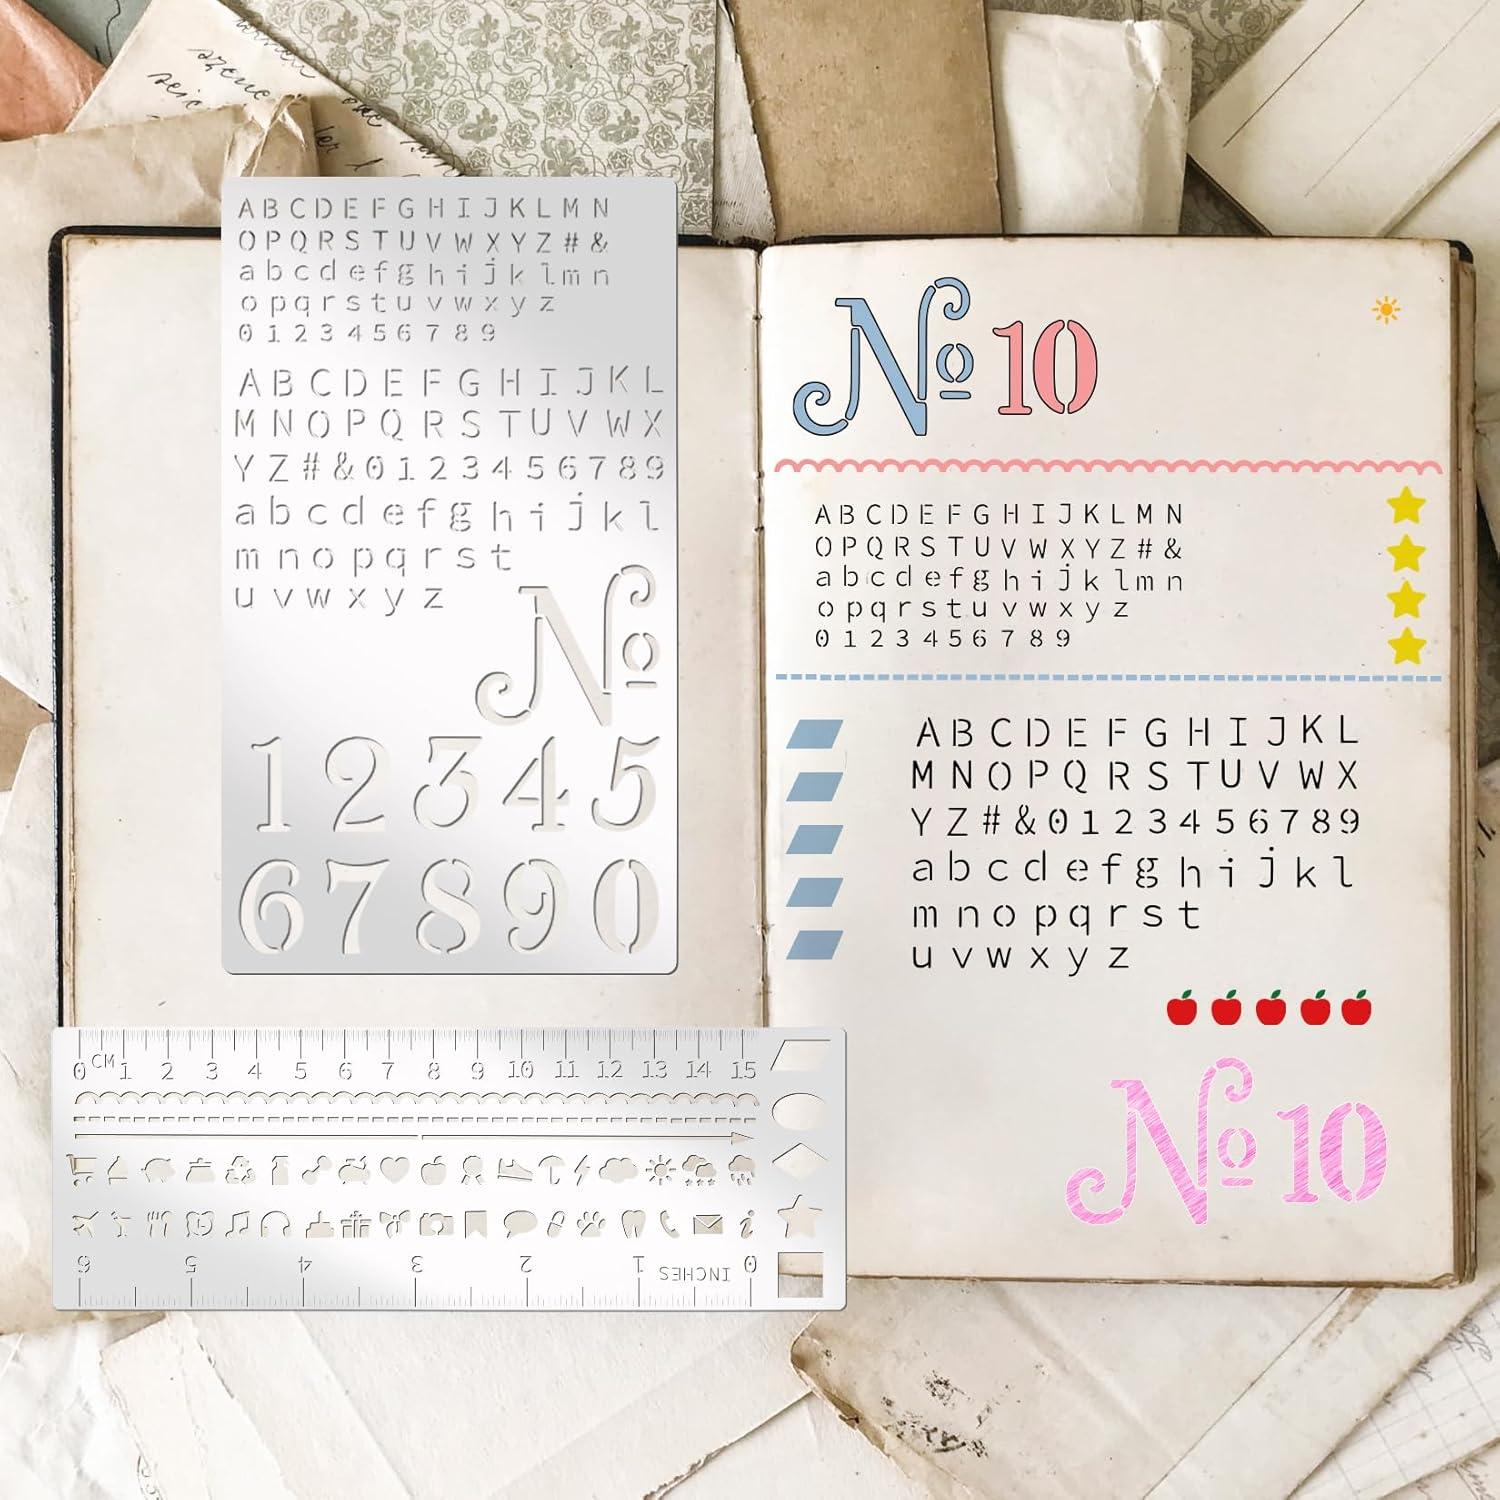 ABCDEFGHIJKLMN
OPQRSTUVWXYZ#&
abcdefghijklmn
opqrstuvwxyz
0123456789
ABCDEFGHIJKL
MNOPQRSTUVWX
YZ#&0123456789
abcdefghijkl
mnopqrst
uvwxyz
№
12345
67890
0 CM 1 2 3 4 5 6 7 8 9 10 11 12 13 14 15
0 INCHES 1 2 3 4 5 6
№ 10
ABCDEFGHIJKLMN
OPQRSTUVWXYZ#&
abcdefghijklmn
opqrstuvwxyz
0123456789
ABCDEFGHIJKL
MNOPQRSTUVWX
YZ#&0123456789
abcdefghijkl
mnopqrst
uvwxyz
№ 10